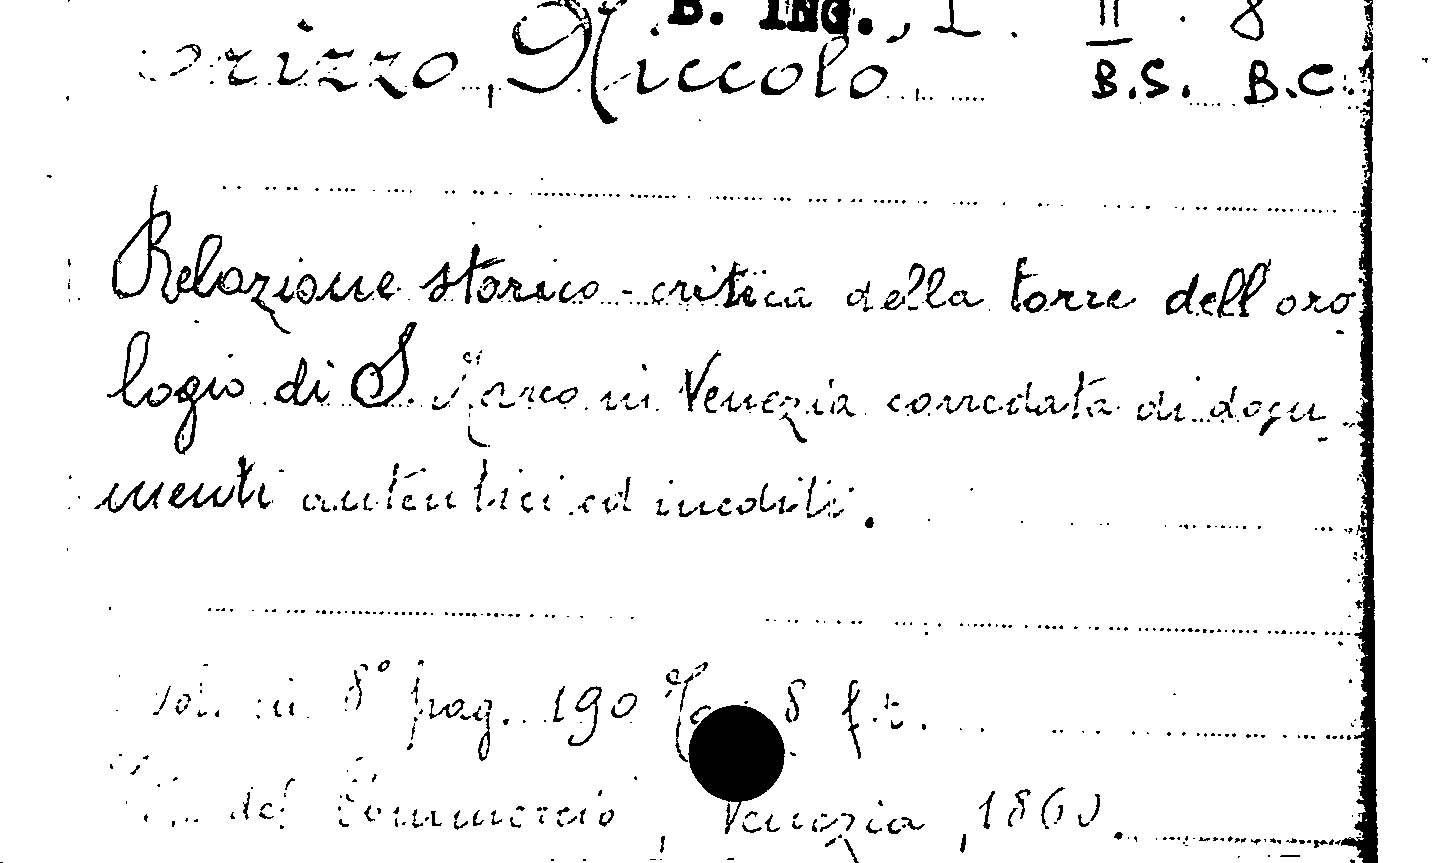 B. ING., I. II. 8
Niccolò, B.S. B.C.
Relazione storico-critica della torre dell'oro
logio di S. Marco in Venezia corredata di docu
menti autentici ed inediti.
vol. in 8° pag. 190 8 f.t.
del Commercio, Venezia, 1860.